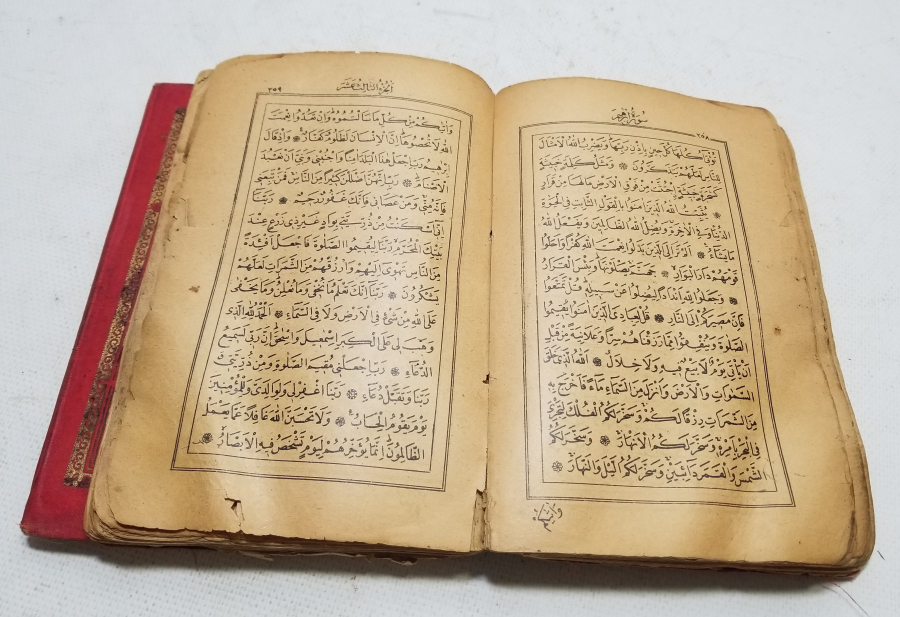 سُورَةُ اِبْرٰهِيمَ
٢٥٨
تُؤْتِي اُكُلَهَا كُلَّ حِينٍ بِاِذْنِ رَبِّهَا وَيَضْرِبُ اللّٰهُ الْاَمْثَالَ
لِلنَّاسِ لَعَلَّهُمْ يَتَذَكَّرُونَ ۞ وَمَثَلُ كَلِمَةٍ خَبِيثَةٍ
كَشَجَرَةٍ خَبِيثَةٍ اجْتُثَّتْ مِنْ فَوْقِ الْاَرْضِ مَالَهَا مِنْ قَرَارٍ
۞ يُثَبِّتُ اللّٰهُ الَّذِينَ اٰمَنُوا بِالْقَوْلِ الثَّابِتِ فِي الْحَيٰوةِ
الدُّنْيَا وَفِي الْاٰخِرَةِ وَيُضِلُّ اللّٰهُ الظَّالِمِينَ وَيَفْعَلُ اللّٰهُ
مَا يَشَاءُ ۞ اَلَمْ تَرَ اِلَى الَّذِينَ بَدَّلُوا نِعْمَتَ اللّٰهِ كُفْرًا وَاَحَلُّوا
قَوْمَهُمْ دَارَ الْبَوَارِ ۞ جَهَنَّمَ يَصْلَوْنَهَا وَبِئْسَ الْقَرَارُ
۞ وَجَعَلُوا لِلّٰهِ اَنْدَادًا لِيُضِلُّوا عَنْ سَبِيلِهِ قُلْ تَمَتَّعُوا
فَاِنَّ مَصِيرَكُمْ اِلَى النَّارِ ۞ قُلْ لِعِبَادِيَ الَّذِينَ اٰمَنُوا يُقِيمُوا
الصَّلٰوةَ وَيُنْفِقُوا مِمَّا رَزَقْنَاهُمْ سِرًّا وَعَلَانِيَةً مِنْ قَبْلِ
اَنْ يَأْتِيَ يَوْمٌ لَا بَيْعٌ فِيهِ وَلَا خِلَالٌ ۞ اَللّٰهُ الَّذِي خَلَقَ
السَّمٰوَاتِ وَالْاَرْضَ وَاَنْزَلَ مِنَ السَّمَاءِ مَاءً فَاَخْرَجَ بِهِ
مِنَ الثَّمَرَاتِ رِزْقًا لَكُمْ وَسَخَّرَ لَكُمُ الْفُلْكَ لِتَجْرِيَ
فِي الْبَحْرِ بِاَمْرِهِ وَسَخَّرَ لَكُمُ الْاَنْهَارَ ۞ وَسَخَّرَ لَكُمُ
الشَّمْسَ وَالْقَمَرَ دَائِبَيْنِ وَسَخَّرَ لَكُمُ الَّيْلَ وَالنَّهَارَ ۞
وَاٰتٰيكُمْ
اَلْجُزْءُ الثَّالِثَ عَشَرَ
٢٥٩
وَاٰتٰيكُمْ مِنْ كُلِّ مَا سَاَلْتُمُوهُ وَاِنْ تَعُدُّوا نِعْمَتَ
اللّٰهِ لَا تُحْصُوهَا اِنَّ الْاِنْسَانَ لَظَلُومٌ كَفَّارٌ ۞ وَاِذْ قَالَ
اِبْرٰهِيمُ رَبِّ اجْعَلْ هٰذَا الْبَلَدَ اٰمِنًا وَاجْنُبْنِي وَبَنِيَّ اَنْ نَعْبُدَ
الْاَصْنَامَ ۞ رَبِّ اِنَّهُنَّ اَضْلَلْنَ كَثِيرًا مِنَ النَّاسِ فَمَنْ تَبِعَنِي
فَاِنَّهُ مِنِّي وَمَنْ عَصَانِي فَاِنَّكَ غَفُورٌ رَحِيمٌ ۞ رَبَّنَا
اِنِّي اَسْكَنْتُ مِنْ ذُرِّيَّتِي بِوَادٍ غَيْرِ ذِي زَرْعٍ عِنْدَ
بَيْتِكَ الْمُحَرَّمِ رَبَّنَا لِيُقِيمُوا الصَّلٰوةَ فَاجْعَلْ اَفْئِدَةً
مِنَ النَّاسِ تَهْوِي اِلَيْهِمْ وَارْزُقْهُمْ مِنَ الثَّمَرَاتِ لَعَلَّهُمْ
يَشْكُرُونَ ۞ رَبَّنَا اِنَّكَ تَعْلَمُ مَا نُخْفِي وَمَا نُعْلِنُ وَمَا يَخْفٰى
عَلَى اللّٰهِ مِنْ شَيْءٍ فِي الْاَرْضِ وَلَا فِي السَّمَاءِ ۞ اَلْحَمْدُ لِلّٰهِ الَّذِي
وَهَبَ لِي عَلَى الْكِبَرِ اِسْمٰعِيلَ وَاِسْحٰقَ اِنَّ رَبِّي لَسَمِيعُ
الدُّعَاءِ ۞ رَبِّ اجْعَلْنِي مُقِيمَ الصَّلٰوةِ وَمِنْ ذُرِّيَّتِي
رَبَّنَا وَتَقَبَّلْ دُعَاءِ ۞ رَبَّنَا اغْفِرْ لِي وَلِوَالِدَيَّ وَلِلْمُؤْمِنِينَ
يَوْمَ يَقُومُ الْحِسَابُ ۞ وَلَا تَحْسَبَنَّ اللّٰهَ غَافِلًا عَمَّا يَعْمَلُ
الظَّالِمُونَ اِنَّمَا يُؤَخِّرُهُمْ لِيَوْمٍ تَشْخَصُ فِيهِ الْاَبْصَارُ ۞